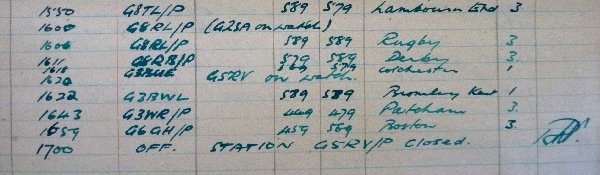 1550 G8TL/P 589 579 Lambourn End 3
1600 G8RL/P (G2SA on watch)
1606 G8RL/P 589 589 Rugby 3
1611 G8RB/P 579 589 Derby 3.
1618 G3BUE 579 Colchester 1
1620 G5RV on watch.
1622 G3BWL 589 589 Bromley Kent 1
1643 G3WR/P 449 479 Patcham 3.
1659 G6GH/P 459 569 Boston 3.
1700 OFF. STATION G5RV/P Closed.